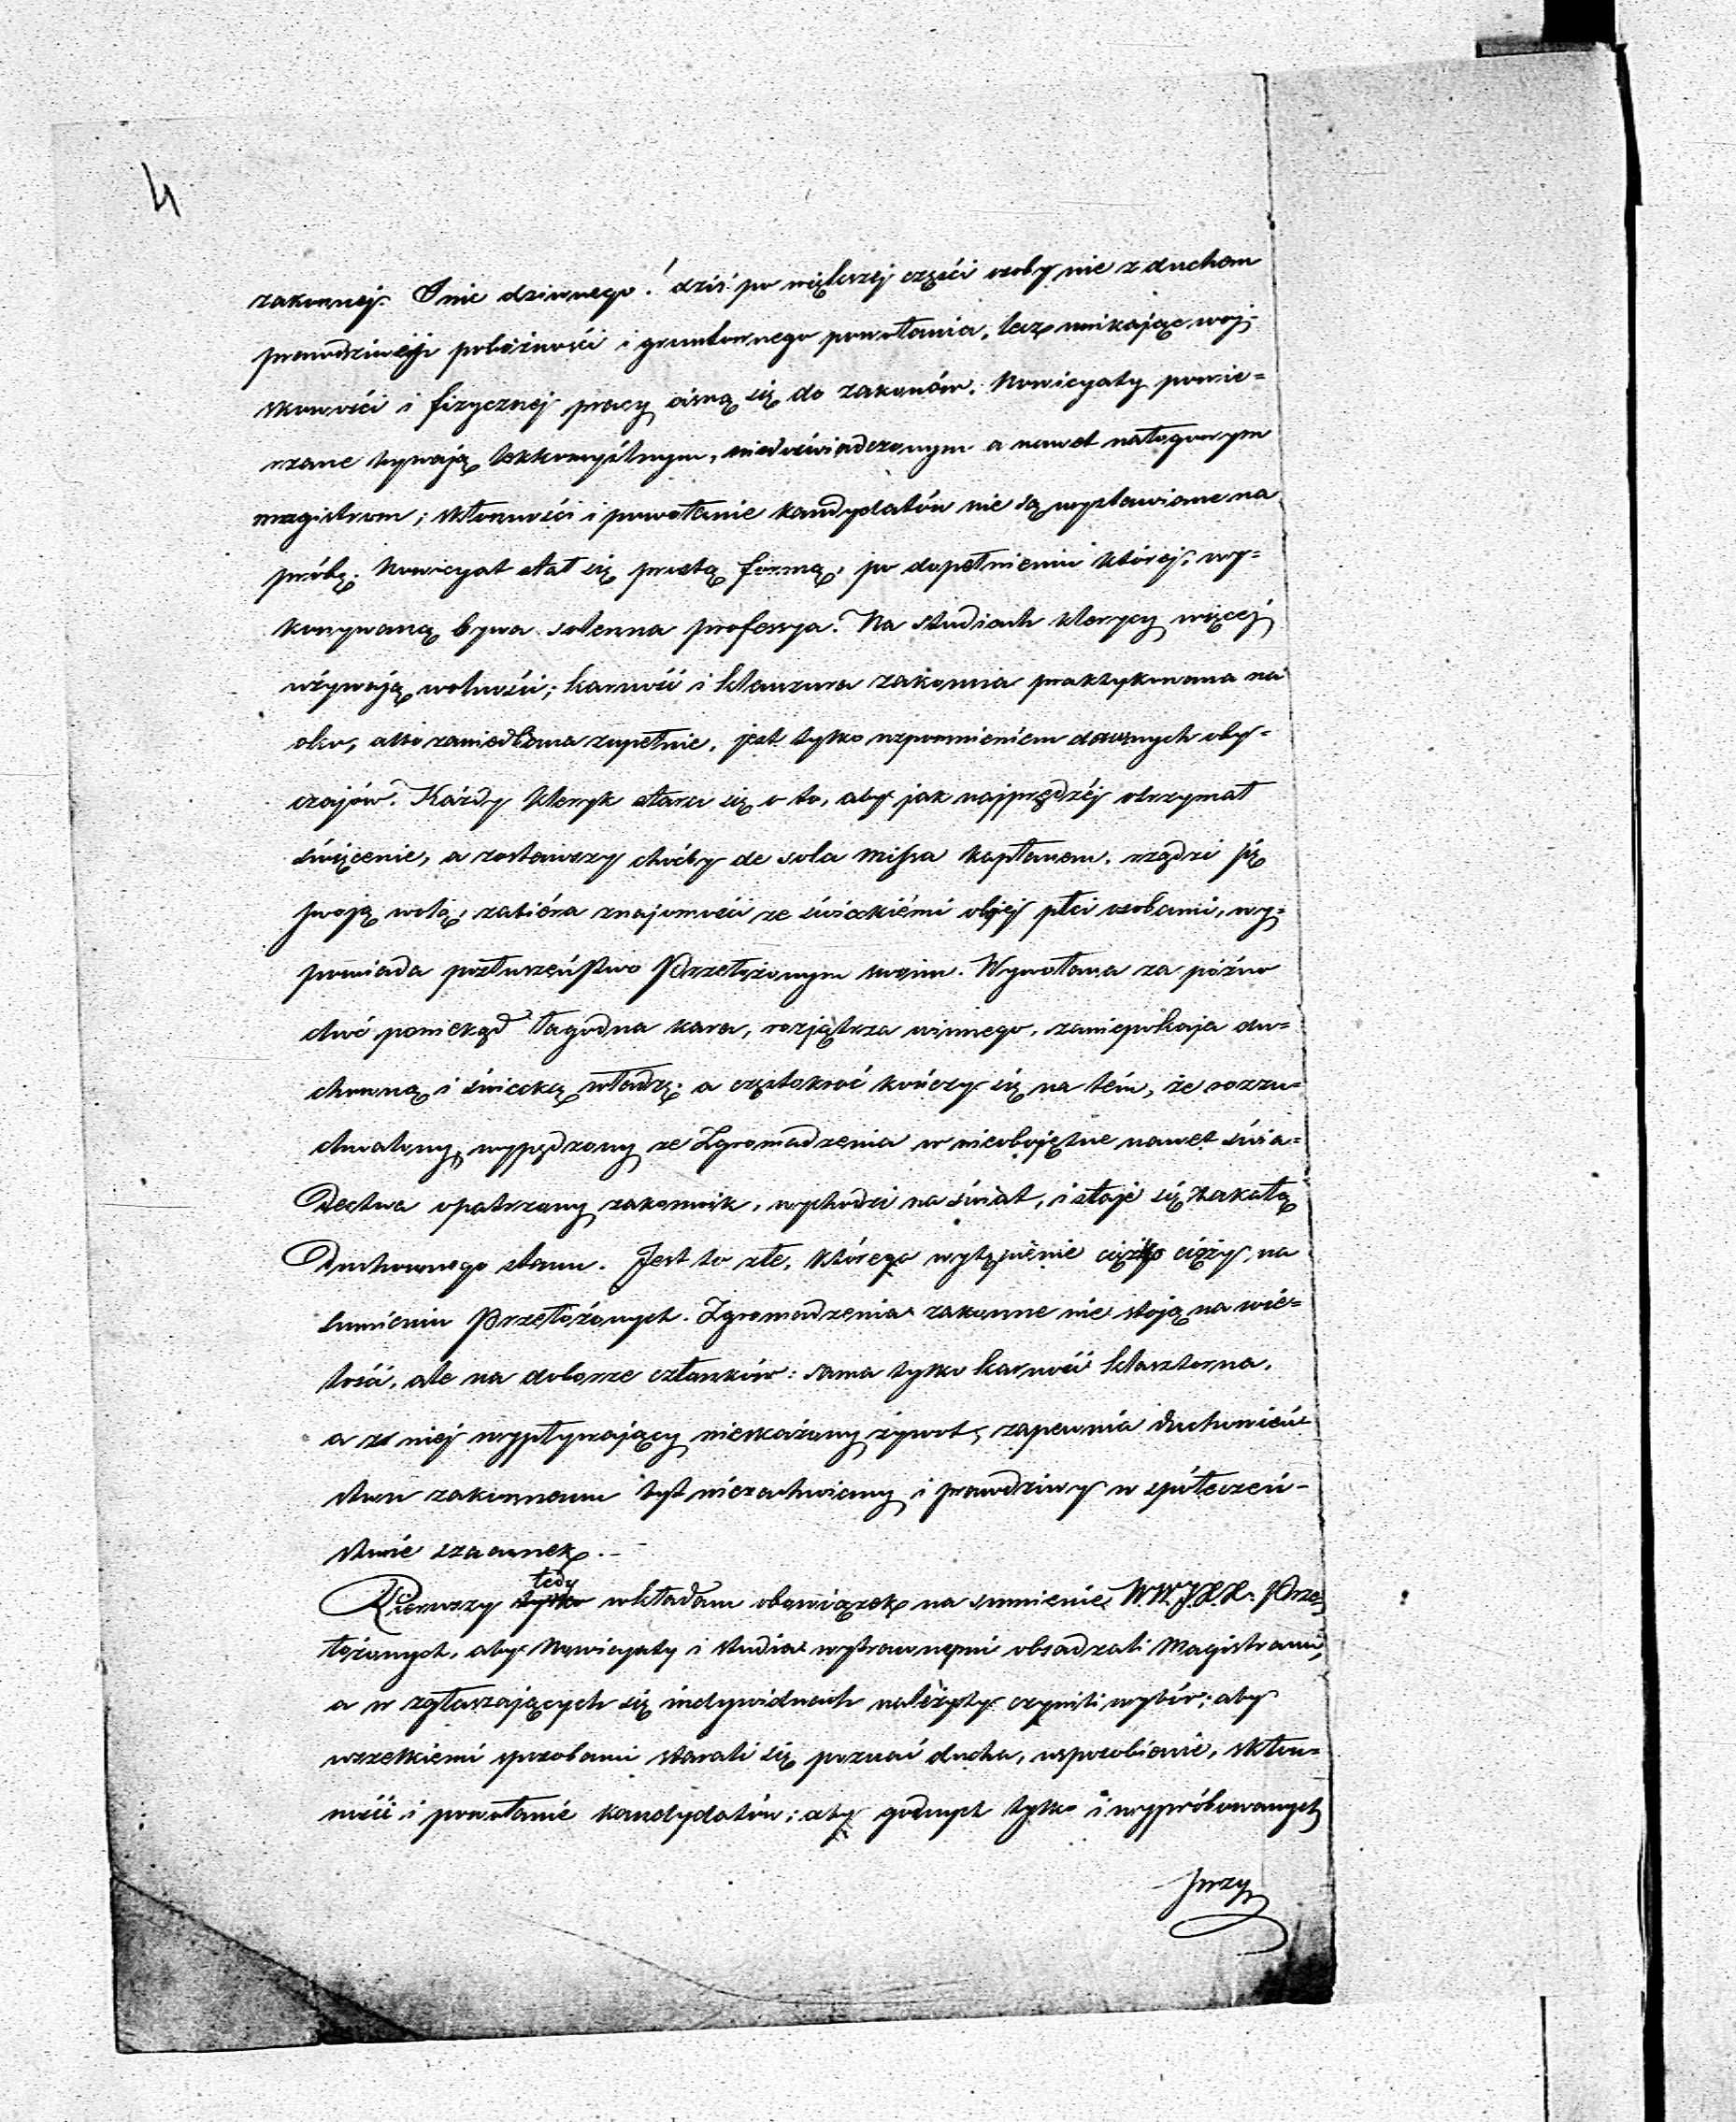 4
zakonnej. I nic dziwnego! dziś po większej części osoby nie z duchem
prawdziwej pobożności i gruntownego powołania, lecz unikając woj-
skowości i fizycznej pracy cisną się do zakonów. Nowicyaty powie-
rzane bywają lekkomyślnym, niedoświadczonym a nawet nałogowym
magistrom; skłonności i powołanie kandydatów nie są wystawione na
próbę. Nowicyat stał się prostą formą, po dopełnieniu której, wy-
konywaną bywa solenna professya. Na studiach klerycy więcej
używają wolności; karność i klauzura zakonna praktykowana na
oko, albo zaniedbana zupełnie, jest tylko wspomnieniem dawnych oby-
czajów. Każdy kleryk stara się o to, aby jak najprędzéj otrzymał
święcenie, a zostawszy choćby de sola missa kapłanem, rządzi się
swoją wolą, zabiéra znajomości ze świeckiémi obojej płci osobami, wy-
powiada posłuszeństwo Przełożonym swoim. Wywołana za późno
choć poniekąd łagodna kara, rozjątrza winnego, zaniepokaja du-
chowną i świecką władzę; a częstokroć kończy się na tém, że rozzu-
chwalony, wypędzony ze Zgromadzenia w nieobojętne nawet świa-
dectwa opatrzony zakonnik, wychodzi na świat, i staje się zakałą
Duchownego stanu. Jest to złe, którego wytępienie ciężko ciąży na
sumieniu Przełożonych. Zgromadzenia zakonne nie stoją na wie-
lości, ale na doborze członków: sama tylko karność klasztorna,
a z niej wypływający nieskażony żywot, zapewnia duchowień-
stwu zakonnemu byt niezachwiany i prawdziwy w społeczeń-
stwie szacunek.
tedy
Pierwszy tylko wkładam obowiązek na sumienie WWJXX. Prze-
łożonych, aby Nowicyaty i studia wytrawnymi obsadzali Magistrami,
a w zgłaszających się indywiduach należyty czynili wybór; aby
wszelkiemi sposobami starali się poznać ducha, usposobienie, skłon-
ność i powołanie kandydatów; aby godnych tylko i wypróbowanych
przy